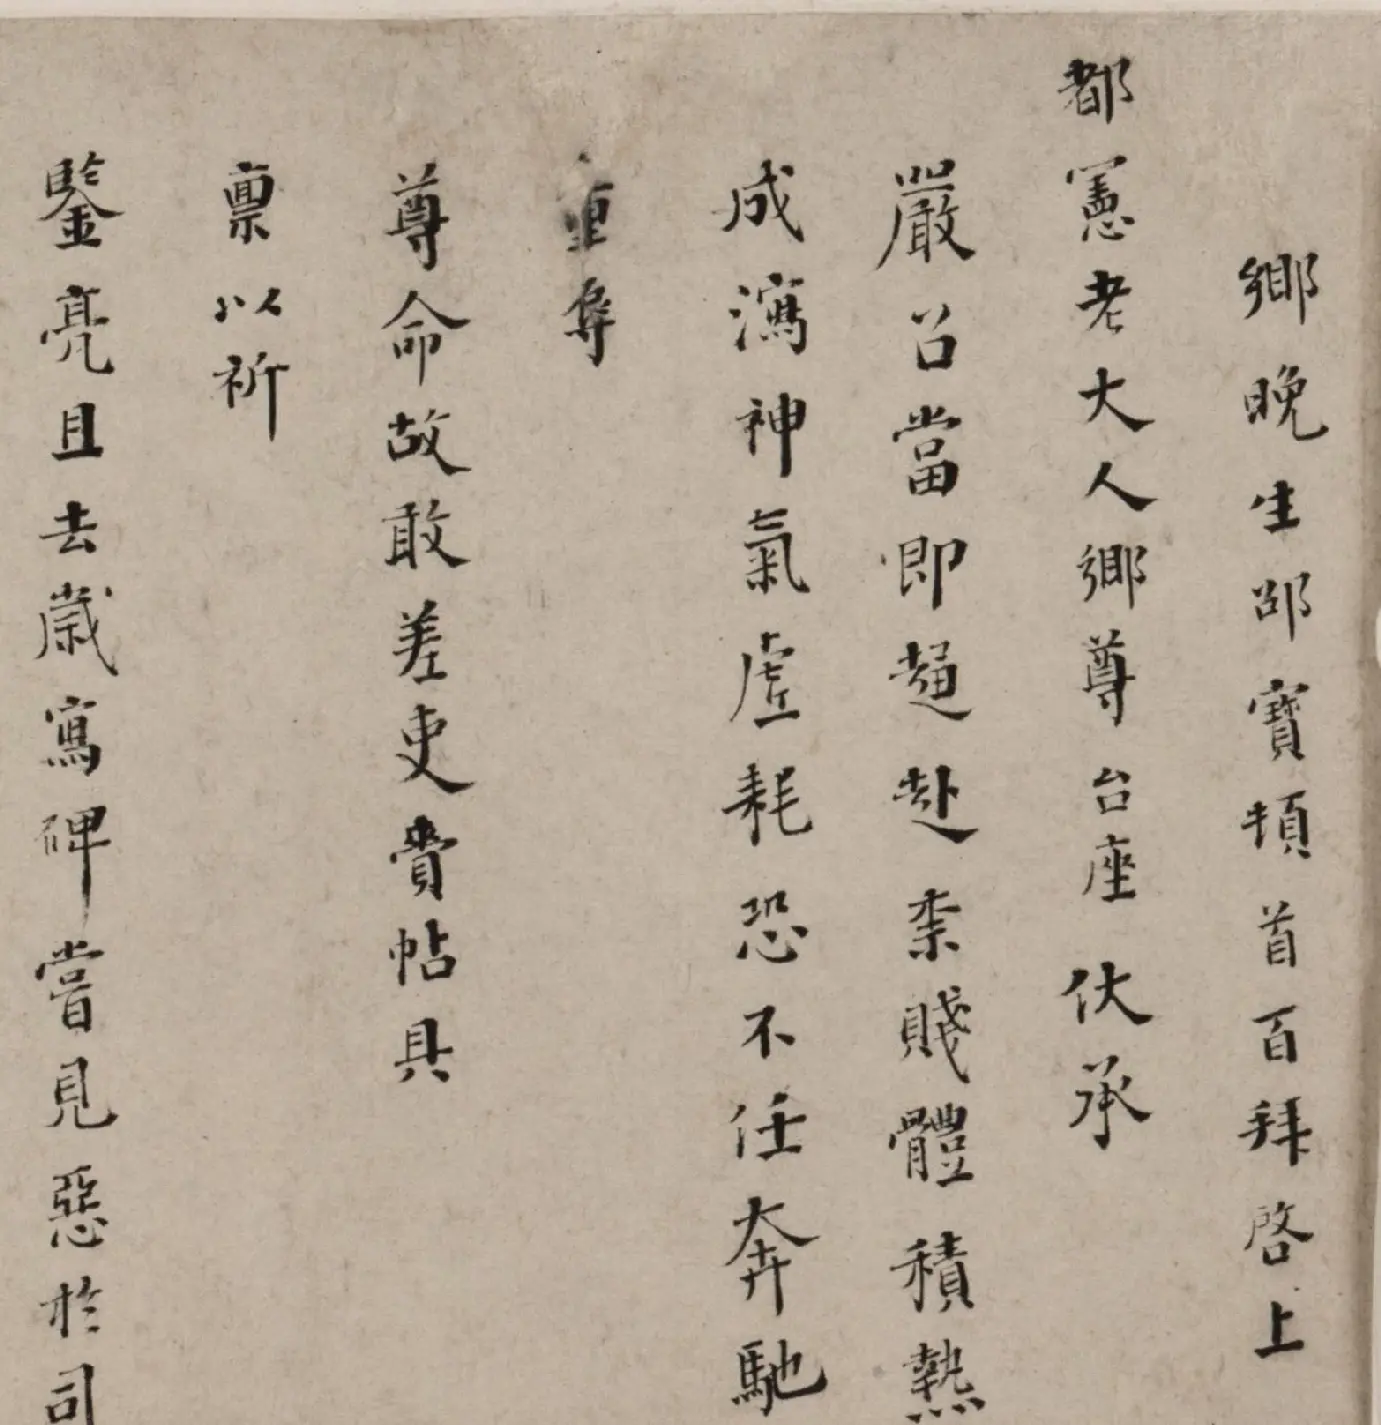 鄉晚生邵寶頓首百拜啓上
都憲老大人鄉尊台座伏承
嚴召當即趨赴柰賤體積熱
成瀉神氣虛耗恐不任奔馳
重辱
尊命故敢差吏賫帖具
稟以祈
鑒亮且去歲寫碑嘗見惡於司